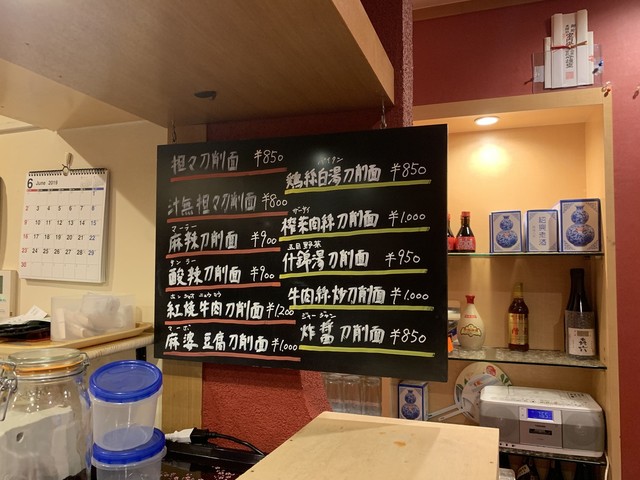 担々刀削面 ¥850
汁無担々刀削面 ¥800
マーラー
麻辣刀削面 ¥900
サンラー
酸辣刀削面 ¥900
紅焼牛肉刀削面 ¥1200
マーボー
麻婆豆腐刀削面 ¥1,000
パイタン
鶏絲白湯刀削面 ¥850
ザーサイ
榨菜肉絲刀削面 ¥1,000
五目野菜
什錦湯刀削面 ¥950
牛肉絲炒刀削面 ¥1,000
ジャージャン
炸醤刀削面 ¥850
6 June 2019
紹興老酒
喜六